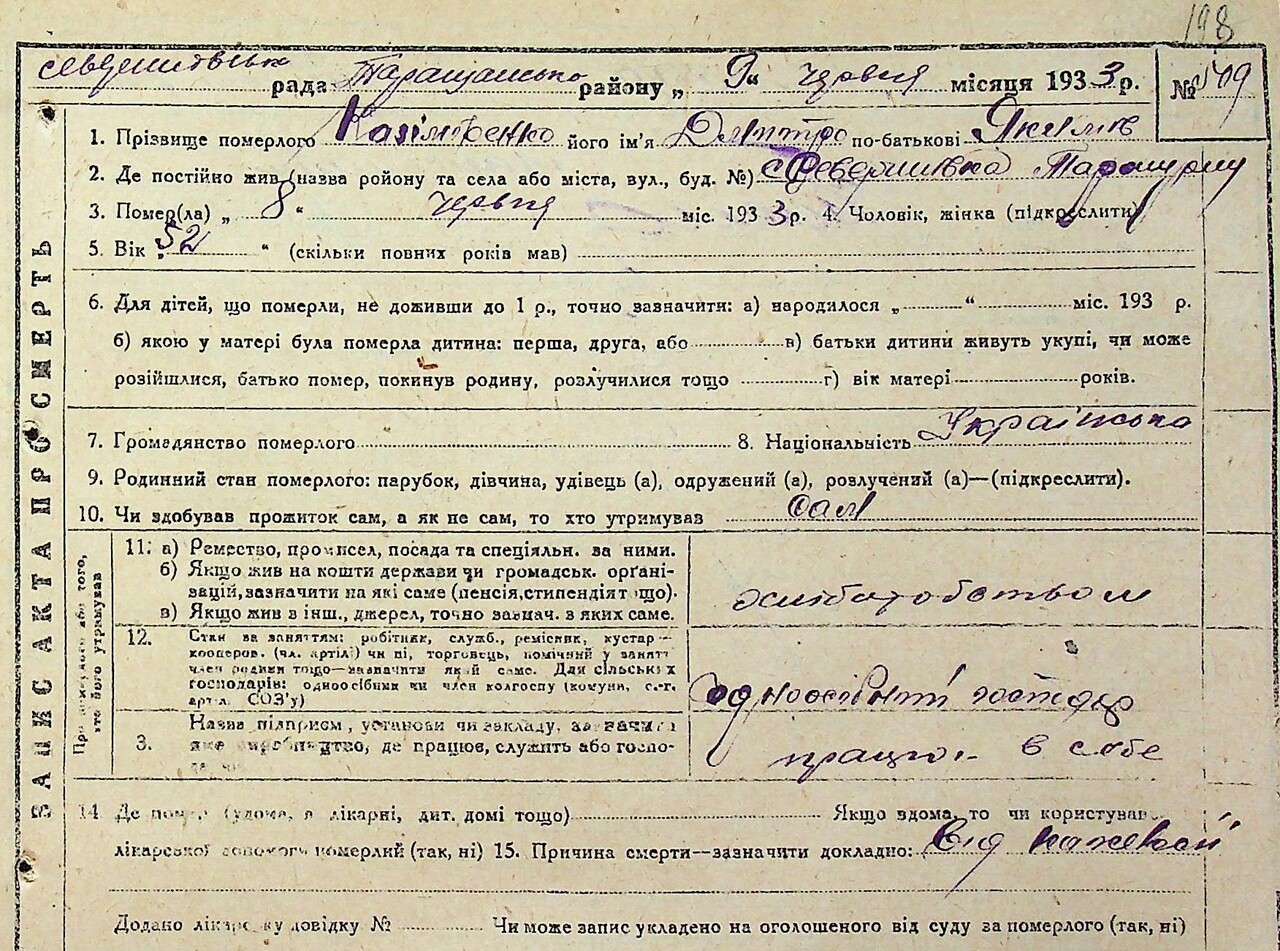 198
рада Таращансько району „ 9 “ червня місяця 1933 р. №
ЗАПИС АКТА ПРО СМЕРТЬ
1. Прізвище померлого його ім'я Дмитро по-батькові Якимів
2. Де постійно жив (назва району та села або міста, вул., буд. №) с
3. Помер(ла) „ 8 “ червня міс. 1933 р. 4. Чоловік, жінка (підкреслити)
5. Вік „ 52 “ (скільки повних років мав)
6. Для дітей, що померли, не доживши до 1 р., точно зазначити: а) народилося „ “ міс. 193 р.
б) якою у матері була померла дитина: перша, друга, або в) батьки дитини живуть укупі, чи може
розійшлися, батько помер, покинув родину, розлучилися тощо г) вік матері років.
7. Громадянство померлого 8. Національність Українсько
9. Родинний стан померлого: парубок, дівчина, удівець (а), одружений (а), розлучений (а)—(підкреслити).
10. Чи здобував прожиток сам, а як не сам, то хто утримував сам
Про померлого або того, хто його утримував
11: а) Ремество, промисел, посада та спеціяльн. за ними.
б) Якщо жив на кошти держави чи громадськ. орґані-
зацій, зазначити на які саме (пенсія, стипендія тощо).
в) Якщо жив з інш., джерел, точно зазнач. з яких саме.
12. Стан за заняттям: робітник, служб., ремісник, кустар—
кооперов. (чл. артілі) чи ні, торговець, помічний у занятті
член родини тощо—зазначити який саме. Для сільських
господарів: одноосібний чи член колгоспу (комуни, с.-г.
артіл. СОЗ'у) господар
3. Назва підприєм., установи чи закладу, зазначити
яке виробництво, де працює, служить або госпо- в себе
14 Де помер (удома, в лікарні, дит. домі тощо) Якщо вдома, то чи користував
лікарської допомоги померлий (так, ні) 15. Причина смерти—зазначити докладно: Від
Додано лікарську довідку № Чи може запис укладено на оголошеного від суду за померлого (так, ні)